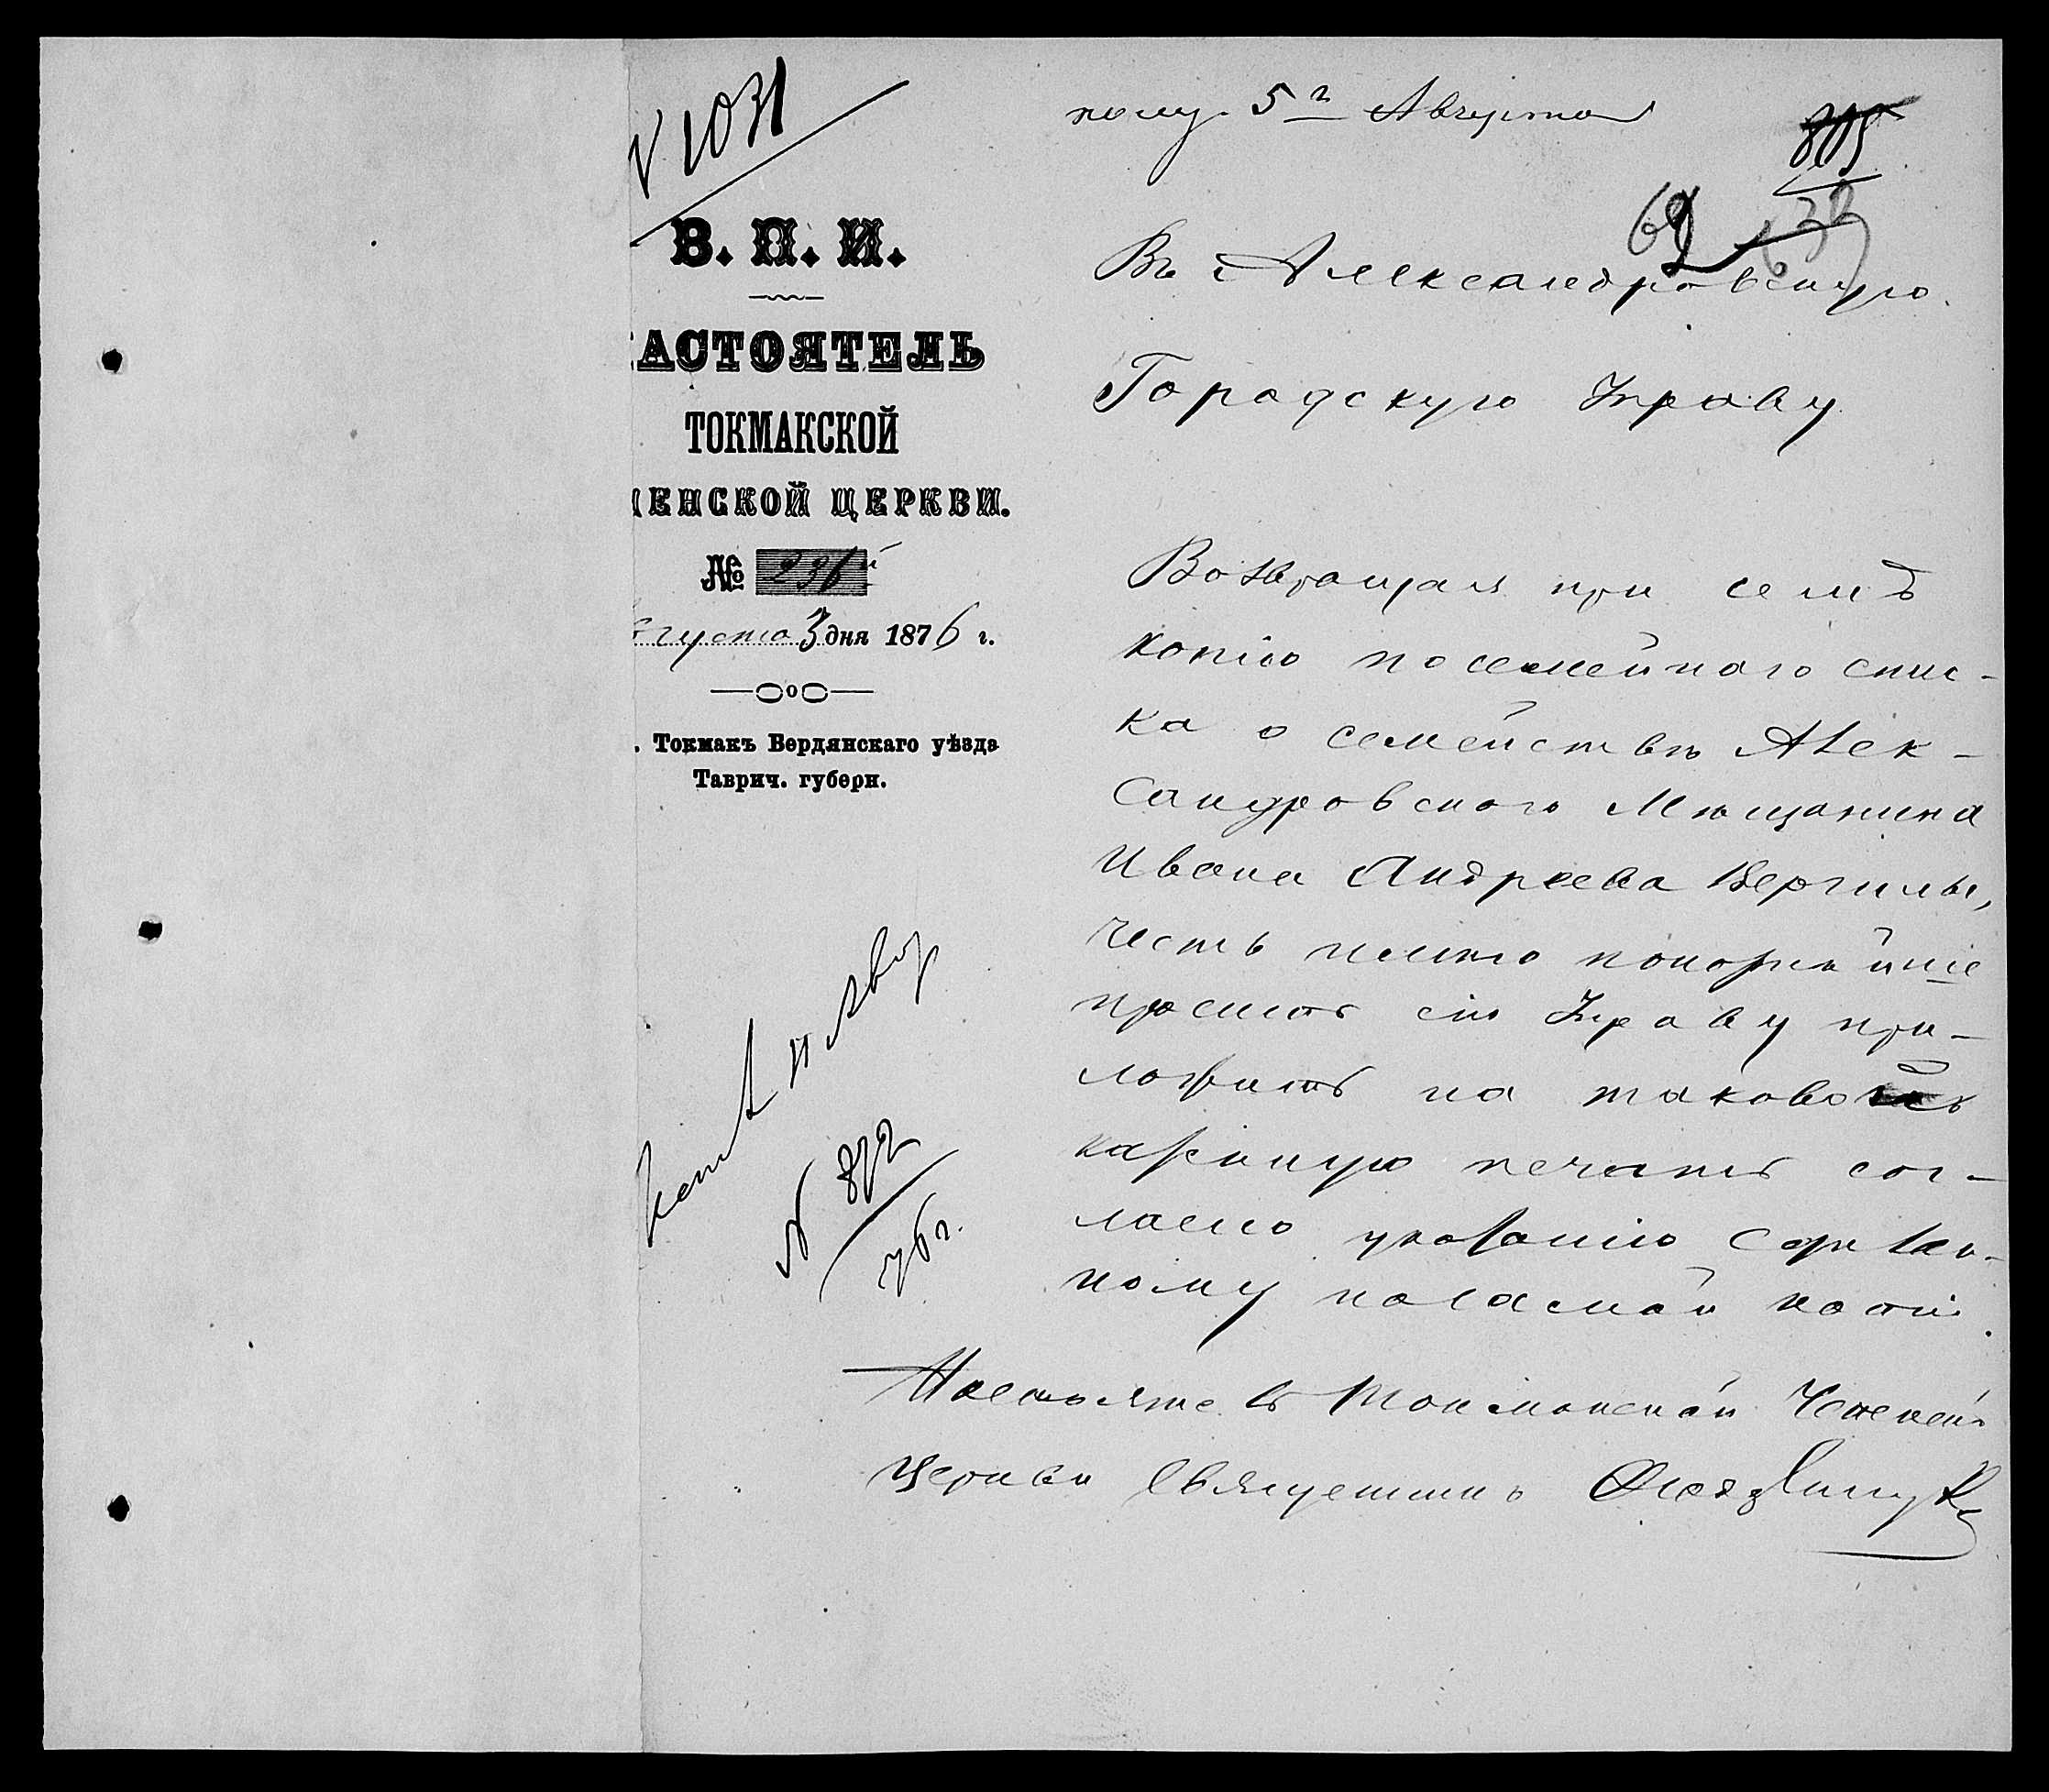 № 1031
В. П. И.
АСТОЯТЕЛЬ
ТОКМАКСКОЙ
ЕНСКОЙ ЦЕРКВИ.
№ 236й
густа 3 дня 1876 г.
. Токмакъ Бердянскаго уѣзда
Таврич. губерн.
№ 872
76 г.
полу. 5го Августа
805
69
Въ Александровскую
Городскую Управу
Возвращая при семъ
копію посемейнаго спис-
ка о семействѣ Алек-
сандровскаго Мѣщанина
Ивана Андреева
честь имѣю покорнѣйше
просить сію Управу при-
ложить на таковой
казенную печать сог-
ласно указанію
на самой копіи.
Настоятель Токмакской
Церкви Священникъ